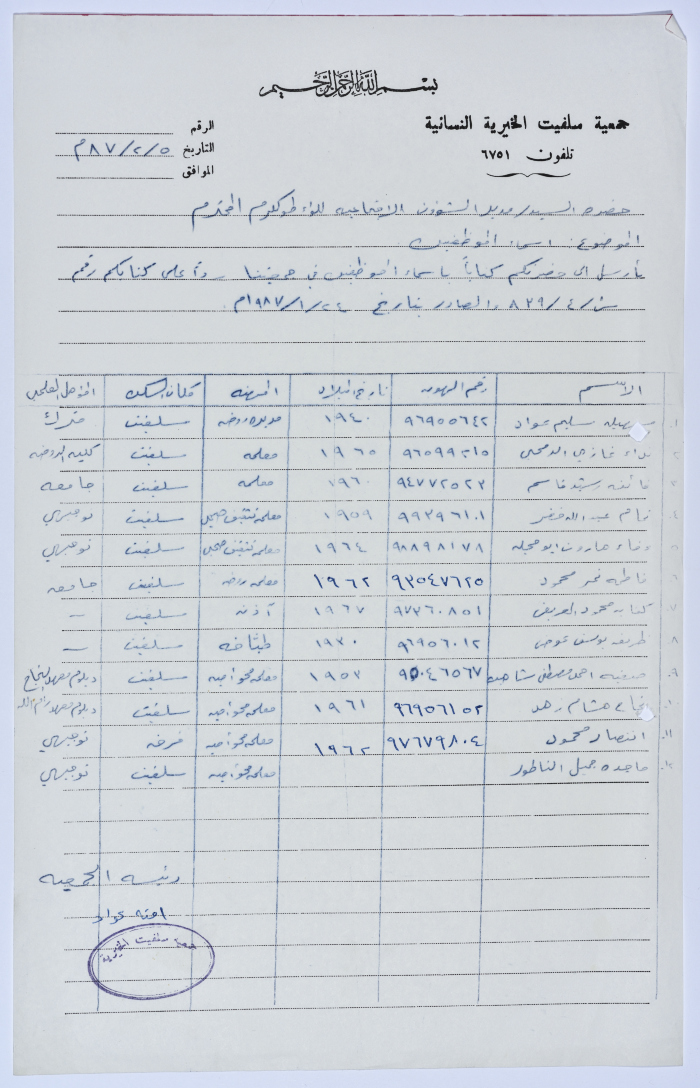 بسم الله الرحمن الرحيم
جمعية سلفيت الخيرية النسائية
تلفون ٦٧٥١
الرقم
التاريخ ٨٧/٢/٥م
الموافق
حضرة السيد مدير الشؤون الاجتماعية للواء طولكرم المحترم
الموضوع: اسماء الموظفين
نرسل الى حضرتكم كتاباً باسماء الموظفين في جمعيتنا رداً على كتابكم رقم
٨٣٩/٤ والصادر بتاريخ ١٩٨٧/١/٢٢م
الاسم رقم الهوية تاريخ الميلاد المهنة مكان السكن المؤهل العلمي
١. سليم عواد ٩٦٩٥٥٦٤٢ ١٩٤٠ مديرة روضة سلفيت مترك
٢. نداء غازي ٩٦٥٩٩٣١٥ ١٩٦٥ معلمة سلفيت كلية الروضة
٣. فائقة رشيد قاسم ٩٤٧٧٢٥٢٣ ١٩٦٠ معلمة سلفيت جامعة
٤. ختام عبدالله خضر ٩٩٣٩٦١٠١ ١٩٥٩ معلمة تثقيف صحي سلفيت توجيهي
٥. وفاء هارون ابو حجلة ٩٨٨٩٨١٧٨ ١٩٦٤ معلمة تثقيف صحي سلفيت توجيهي
٦. فاطمة نمر محمود ٩٣٥٤٧٦٢٥ ١٩٦٢ معلمة روضة سلفيت جامعة
٧. محمود ٩٧٣٦٠٨٥١ ١٩٦٧ آذنة سلفيت –
٨. ظريفة يوسف عوض ٩٦٩٥٦٠١٢ ١٩٣٠ طباخة سلفيت –
٩. صفية احمد مصطفى شاهين ٩٥٠٤٦٥٦٧ ١٩٥٧ معلمة محو امية سلفيت دبلوم معهد النجاح
١٠. هشام ٩٦٩٥٦١٥٢ ١٩٦١ معلمة محو امية سلفيت دبلوم معهد رام الله
١١. انتصار محمود ٩٧٦٧٩٨٠٤ ١٩٦٢ معلمة محو امية فرخة توجيهي
١٢. ماجدة جميل الناطور معلمة محو امية سلفيت توجيهي
رئيسة الجمعية
امنة عواد
جمعية سلفيت الخيرية